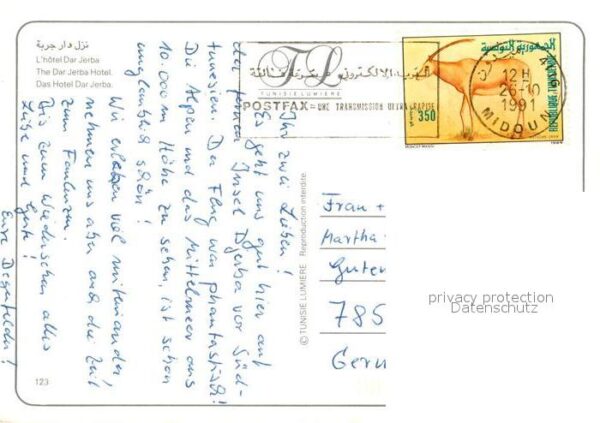 نزل دار جربة
L'hôtel Dar Jerba
The Dar Jerba Hotel.
Das Hotel Dar Jerba.
TL
TUNISIE LUMIERE
البريد الالكتروني
POSTFAX = UNE TRANSMISSION ULTRA RAPIDE
الجمهورية التونسية
350
12H
26-10
1991
MIDOUN
Ihr zwei Lieben!
Es geht uns gut hier auf
der fernen Insel Djerba vor Süd-
tunesien. Der Flug war phantastisch!
Die Alpen und das Mittelmeer aus
10.000m Höhe zu sehen, ist schon
unglaublich schön!
Wir erleben viel miteinander,
nehmen uns aber auch die Zeit
zum Faulenzen.
Bis zum Wiedersehen alles
Liebe und Gute!
Eure Degenfelder!
© TUNISIE LUMIERE Reproduction interdite
Frau +
Martha
Guten
785
Germ
privacy protection
Datenschutz
123